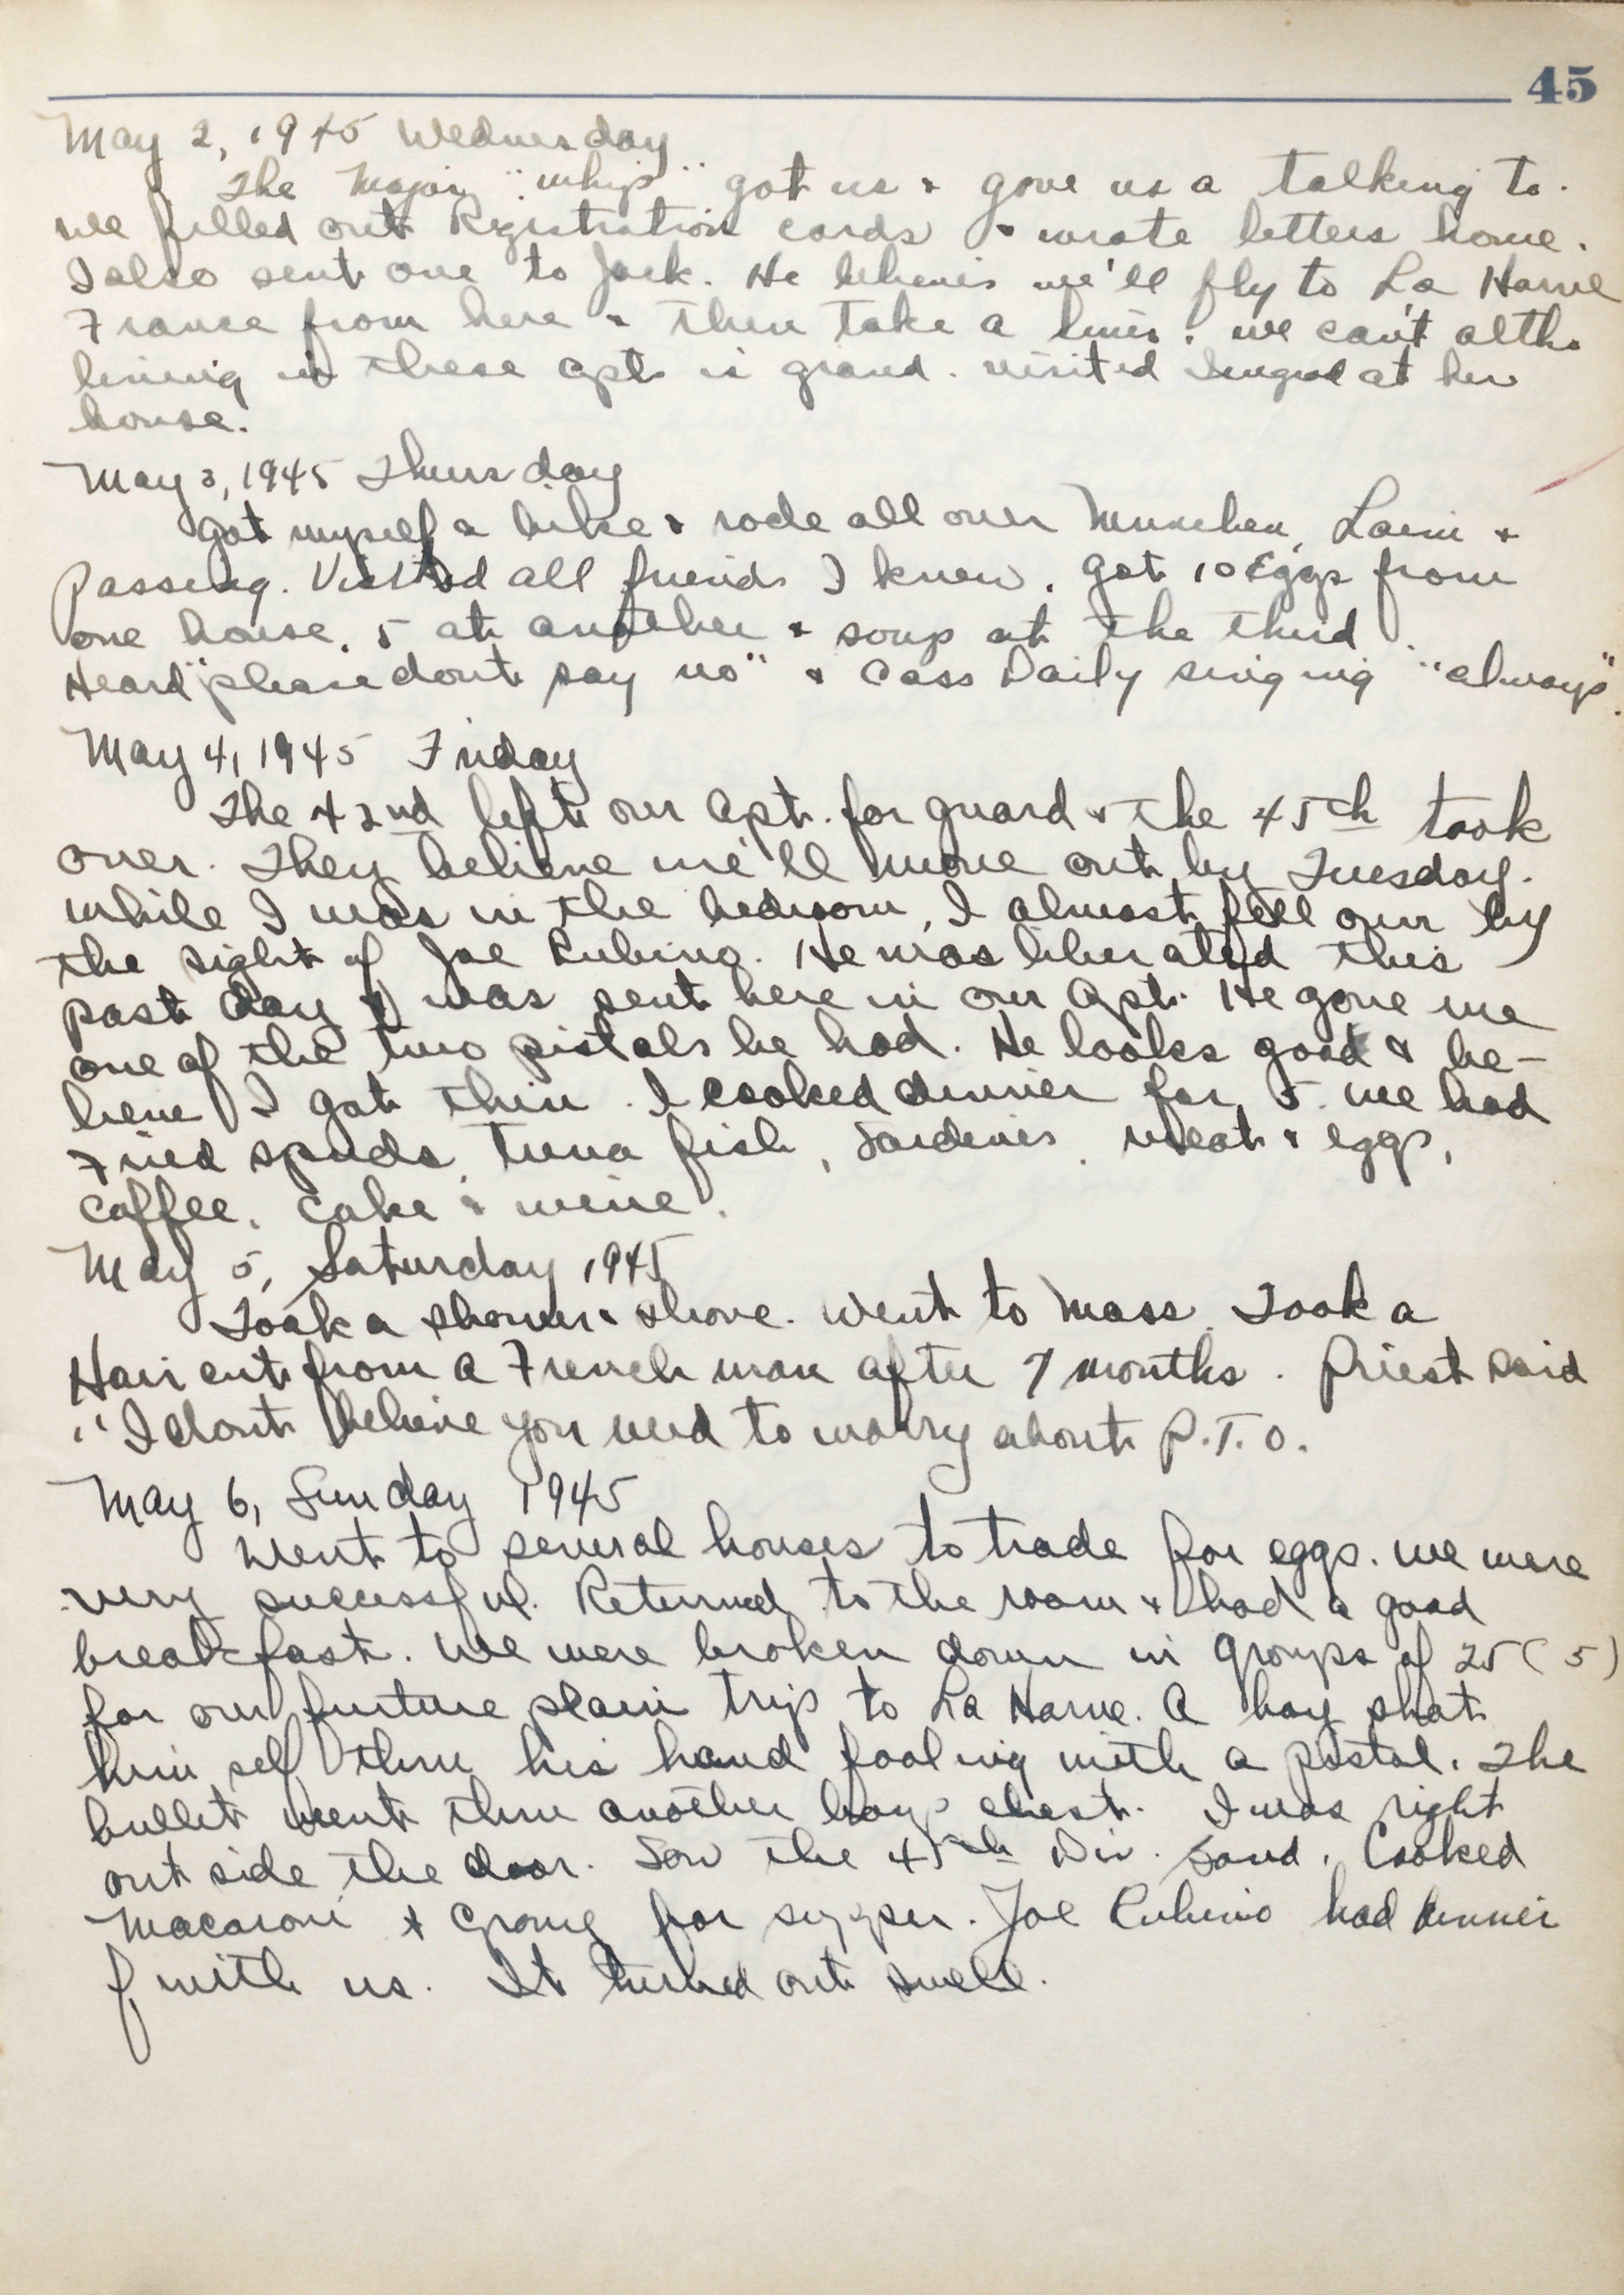 45
May 2, 1945 Wednesday
The Major "whip" got us & gave us a talking to.
we filled out Registration cards & wrote letters home.
I also sent one to Jack. He believes we'll fly to La Harve
France from here & then take a liner. we can't altho
living in these apt is grand. visited at her
house.
May 3, 1945 Thursday
Got myself a bike & rode all over Munchen, Laim &
Passing. Visited all friends I knew. got 10 Eggs from
one house, 5 at another & soup at the third.
Heard "please dont say no" & Cass Daily singing "always".
May 4, 1945 Friday
The 42nd left our Apt. for guard & the 45th took
over. They believe we'll move out by Tuesday.
while I was in the bedroom, I almost fell over by
the sight of Joe Rubino. He was liberated this
past day & was sent here in our Apt. He gave me
one of the two pistols he had. He looks good & be-
lieve I got thin. I cooked dinner for 5. we had
Fried spuds, Tuna fish, Sardines, meat & eggs,
coffee, cake & wine.
May 5, Saturday 1945
Took a shower & shave. Went to Mass. Took a
Hair cut from a French man after 7 months. Priest said
"I dont believe you need to worry about P.T.O.
May 6, Sunday 1945
Went to several houses to trade for eggs. we were
very successful. Returned to the room & had a good
breakfast. We were broken down in groups of 25 (5)
for our furture plain trip to La Harve. A boy shot
him self thru his hand fooling with a pistol. The
bullet went thru another boys chest. I was right
out side the door. Saw the 45th Div. band. Cooked
Macaroni & gravy for supper. Joe Rubino had dinner
with us. It turned out swell.